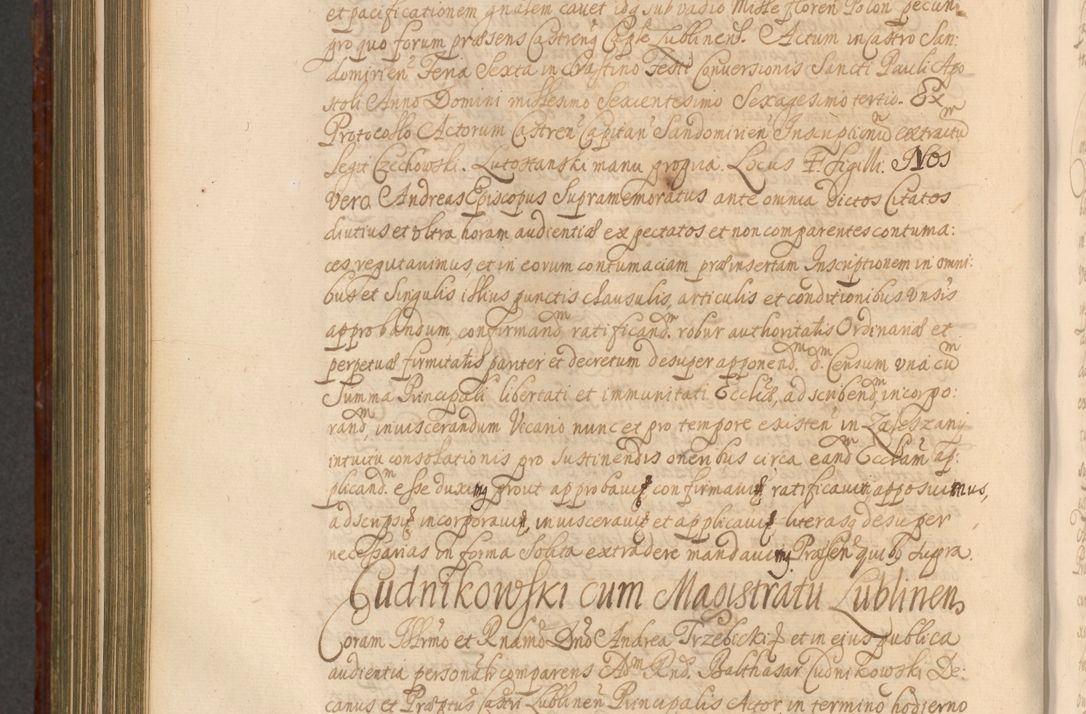 et pacificationem gnalem cavet idq sub vadio Mille floren Polon pecun
pro quo forum præsens Castreng Caple Lublinens. Actum in Castro San:
domirien Feria Sexta in Crastino Festi Conversionis Sancti Pauli Apo
stoli Anno Domini millesimo Sexcentesimo Sexagesimo tertio. Ex
Protocollo Actorum Castren Capitan Sandomirien Inscriptionu extractu
Legit Czechowski. Lutostanski manu propria. Locus F. Sigilli. Nos
Vero Andreas Episcopus Supramemoratus ante omnia dictos Citatos
diutius et ultra horam audientiæ expectatos et non comparentes contuma:
ces reputavimus, et in eorum contumaciam præinsertam Inscriptionem in omni:
bus et Singulis illius punctis clausulis, articulis et conditionibus vnsis
approbandum, confirmand ratificand. robur authoritatis Ordinariæ et
perpetuæ firmitatis pariter et decretum desuper apponend. d. Censum vna cu
Summa Principali libertati et immunitati Eccliæ, adscribend incorpo:
rand, inviscerandum Vicario nunc et pro tempore existen in Zaleszany
intuitu consolationis pro Sustinendis oneribus circa eand Eccliam ap:
plicand. esse duximq prout approbavimq confirmavimq ratificavimq apposuimus,
adscripsimq incorporavimq, invisceravimq et applicavimq literasq desuper
necessarias in forma Solita extradere mandavimq. Præsen quibq supra.
Cudnikowski cum Magistratu Lublinen,
Coram Illrmo et Rndmo Dno Andrea Trzebicki et in eius publica
audientia personalr comparens Adm Rnd. Balthasar Cudnikowski De:
canus et Præptus Castri Lublinen Principalis Actor in termino hodierno